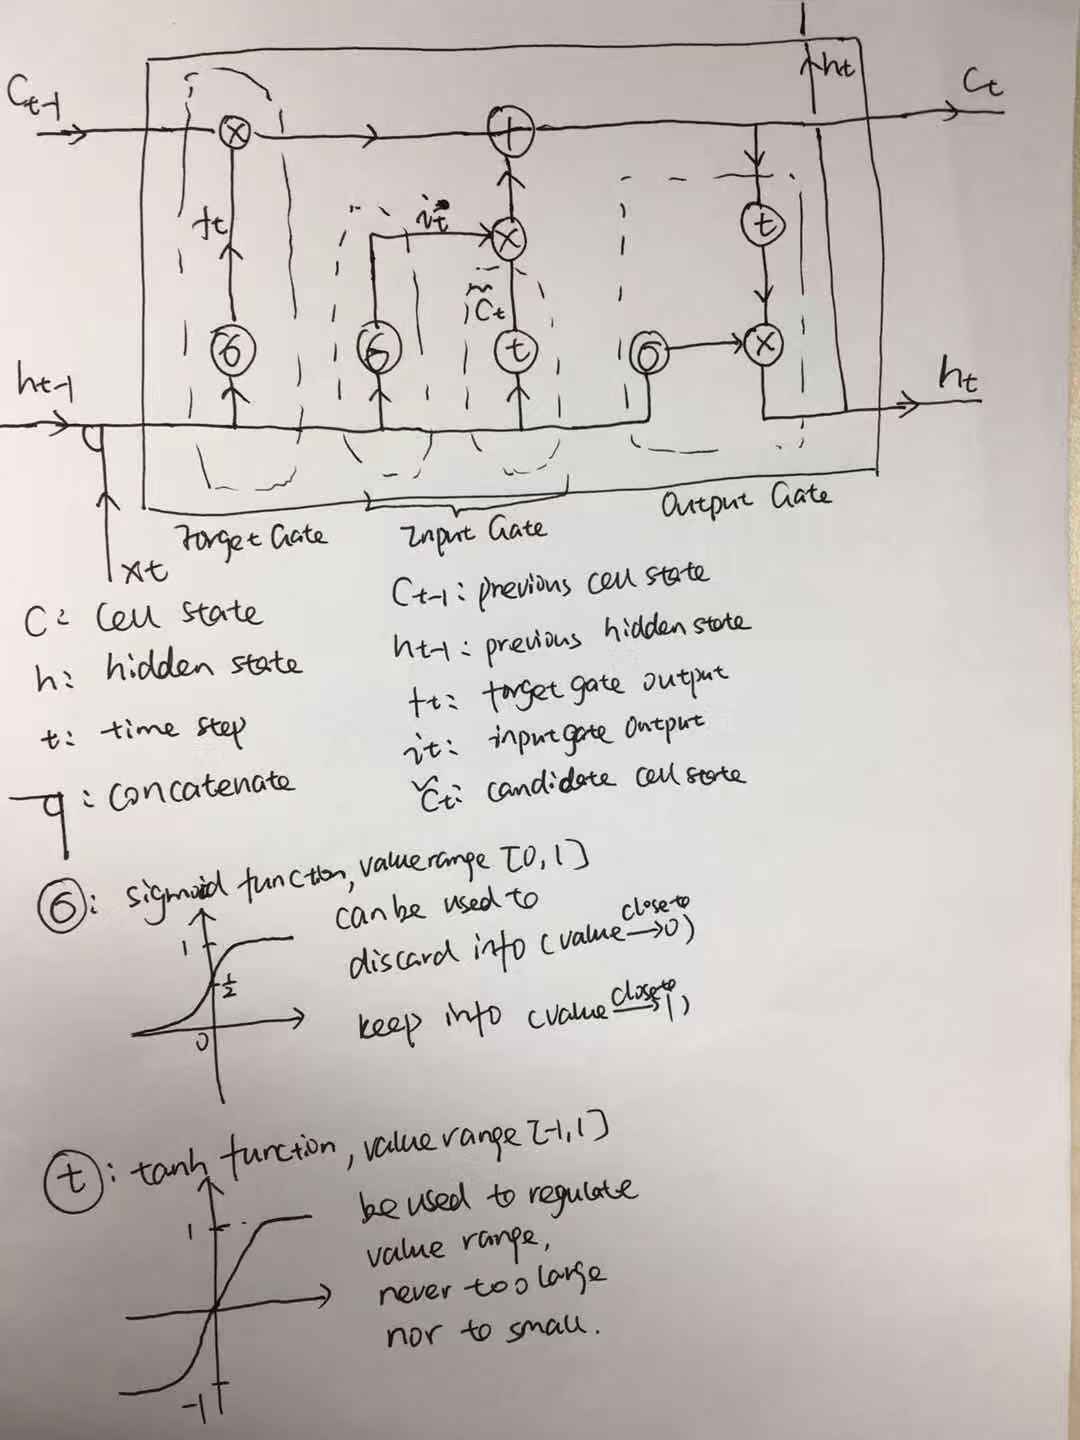 ht
Ct-1
Ct
×
+
ft
it
×
t
C̃t
σ
σ
t
σ
×
ht-1
ht
xt
Forget Gate
Input Gate
Output Gate
C: Cell state
h: hidden state
t: time step
: concatenate
Ct-1: previous cell state
ht-1: previous hidden state
ft: forget gate output
it: input gate output
C̃t: candidate cell state
σ: sigmoid function, value range [0, 1]
can be used to
discard info (value close to → 0)
keep info (value close to → 1)
1
1/2
0
t: tanh function, value range [-1, 1]
be used to regulate
value range,
never too large
nor to small.
1
-1